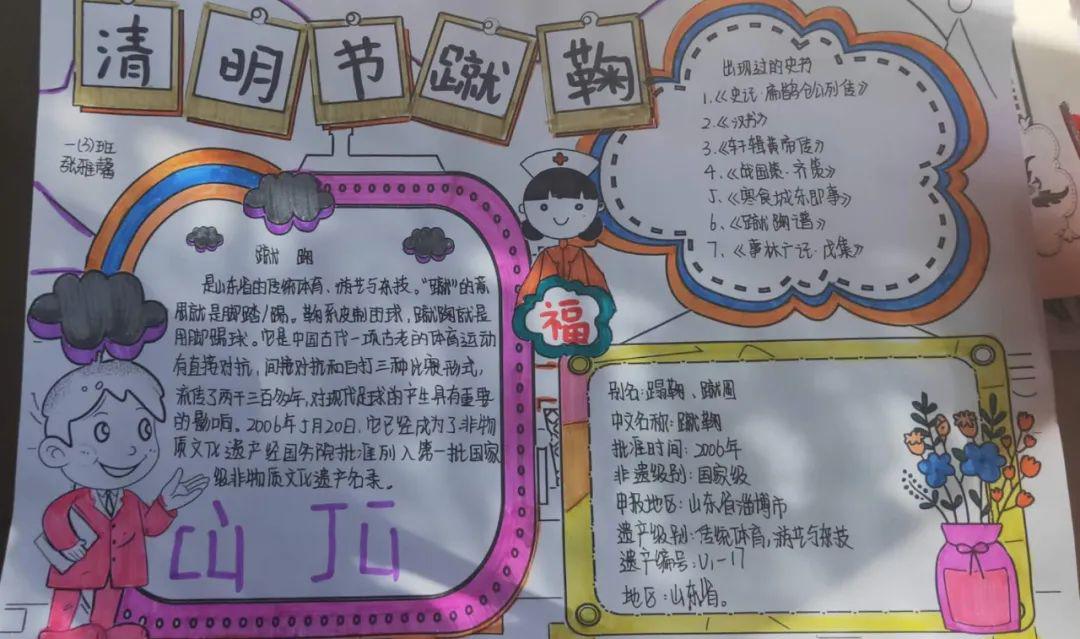 清明节蹴鞠
一(3)班
张雅馨
蹴鞠
是山东省的传统体育、游艺与杂技。"蹴"的意
用就是脚踏/踢。鞠系皮制团球，蹴鞠就是
用脚踢球。它是中国古代一项古老的体育运动
有直接对抗，间接对抗和白打三种比赛形式，
流传了两千三百多年，对现代足球的产生具有重要
的影响。2006年5月20日，它已经成为了非物
质文化遗产经国务院批准列入第一批国家
级非物质文化遗产名录。
cù jū
福
出现过的史书
1.《史记·扁鹊仓公列传》
2.《汉书》
3.《轩辕黄帝传》
4.《战国策·齐策》
5.《寒食城东即事》
6.《蹴鞠谱》
7.《事林广记·戊集》
别名:蹋鞠、蹴圆
中文名称:蹴鞠
批准时间:2006年
非遗级别:国家级
申报地区:山东省淄博市
遗产级别:传统体育,游艺与杂技
遗产编号:Ⅵ-17
地区:山东省。